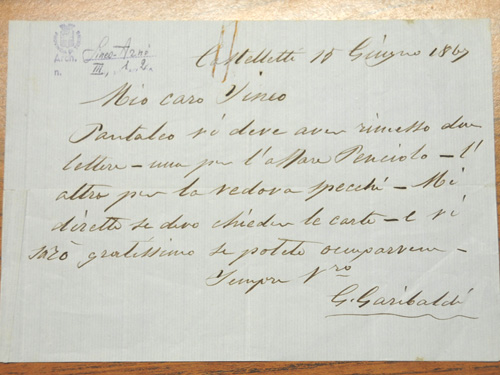 Sineo - Arnò
III, 1. 2.
n.
Castelletti 15 Giugno 1867
Mio caro Sineo
Pantaleo vi deve aver rimesso due
lettere - una per l'affare Penciolo - l'
altro per la vedova Specchi - Mi
direte se devo chieder le carte - e vi
sarò gratissimo se potete occuparvene -
Sempre Vro
G. Garibaldi